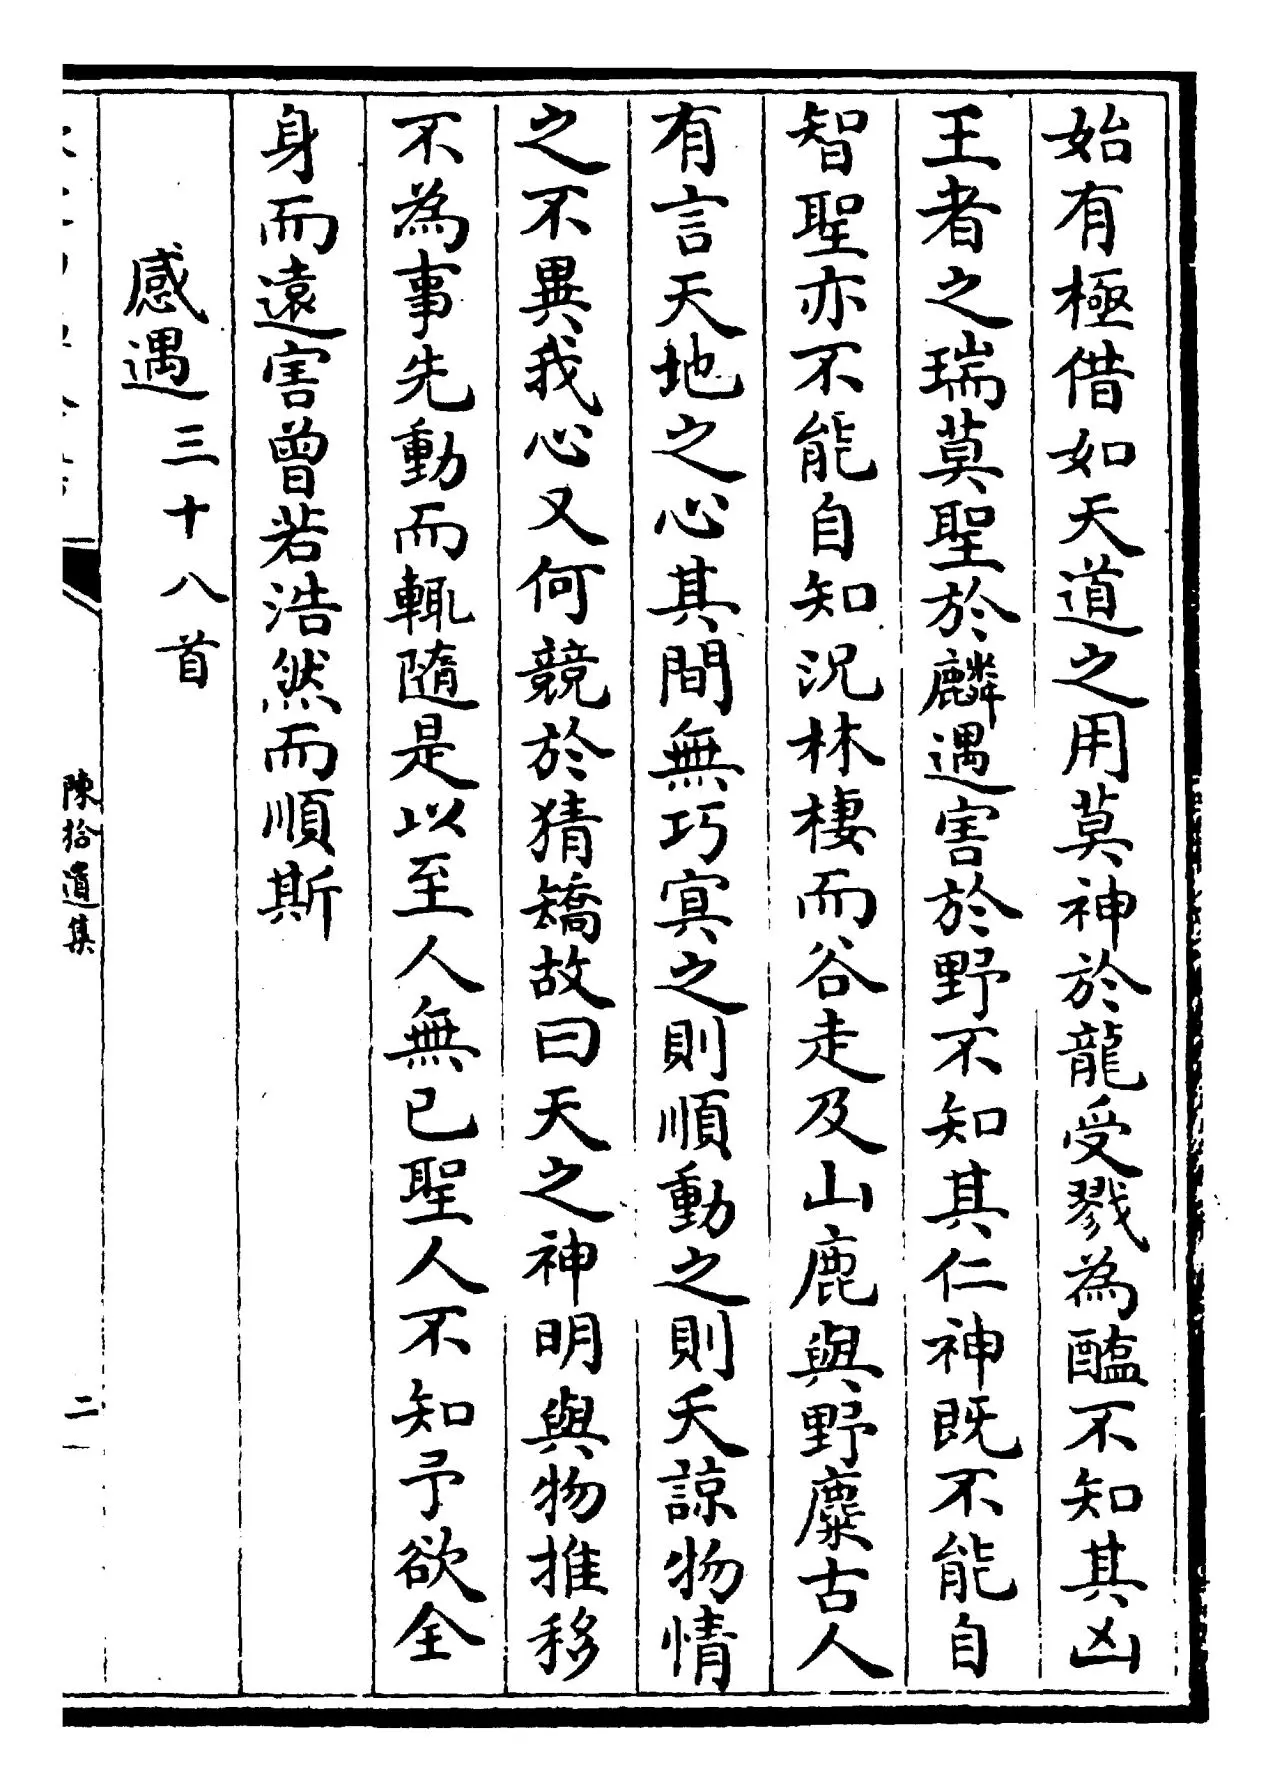 始有極借如天道之用莫神於龍受戮為醢不知其凶
王者之瑞莫聖於麟遇害於野不知其仁神既不能自
智聖亦不能自知況林棲而谷走及山鹿與野麋古人
有言天地之心其間無巧冥之則順動之則夭諒物情
之不異我心又何競於猜矯故曰天之神明與物推移
不為事先動而輒隨是以至人無已聖人不知予欲全
身而遠害曾若浩然而順斯
感遇三十八首
陳拾遺集
二